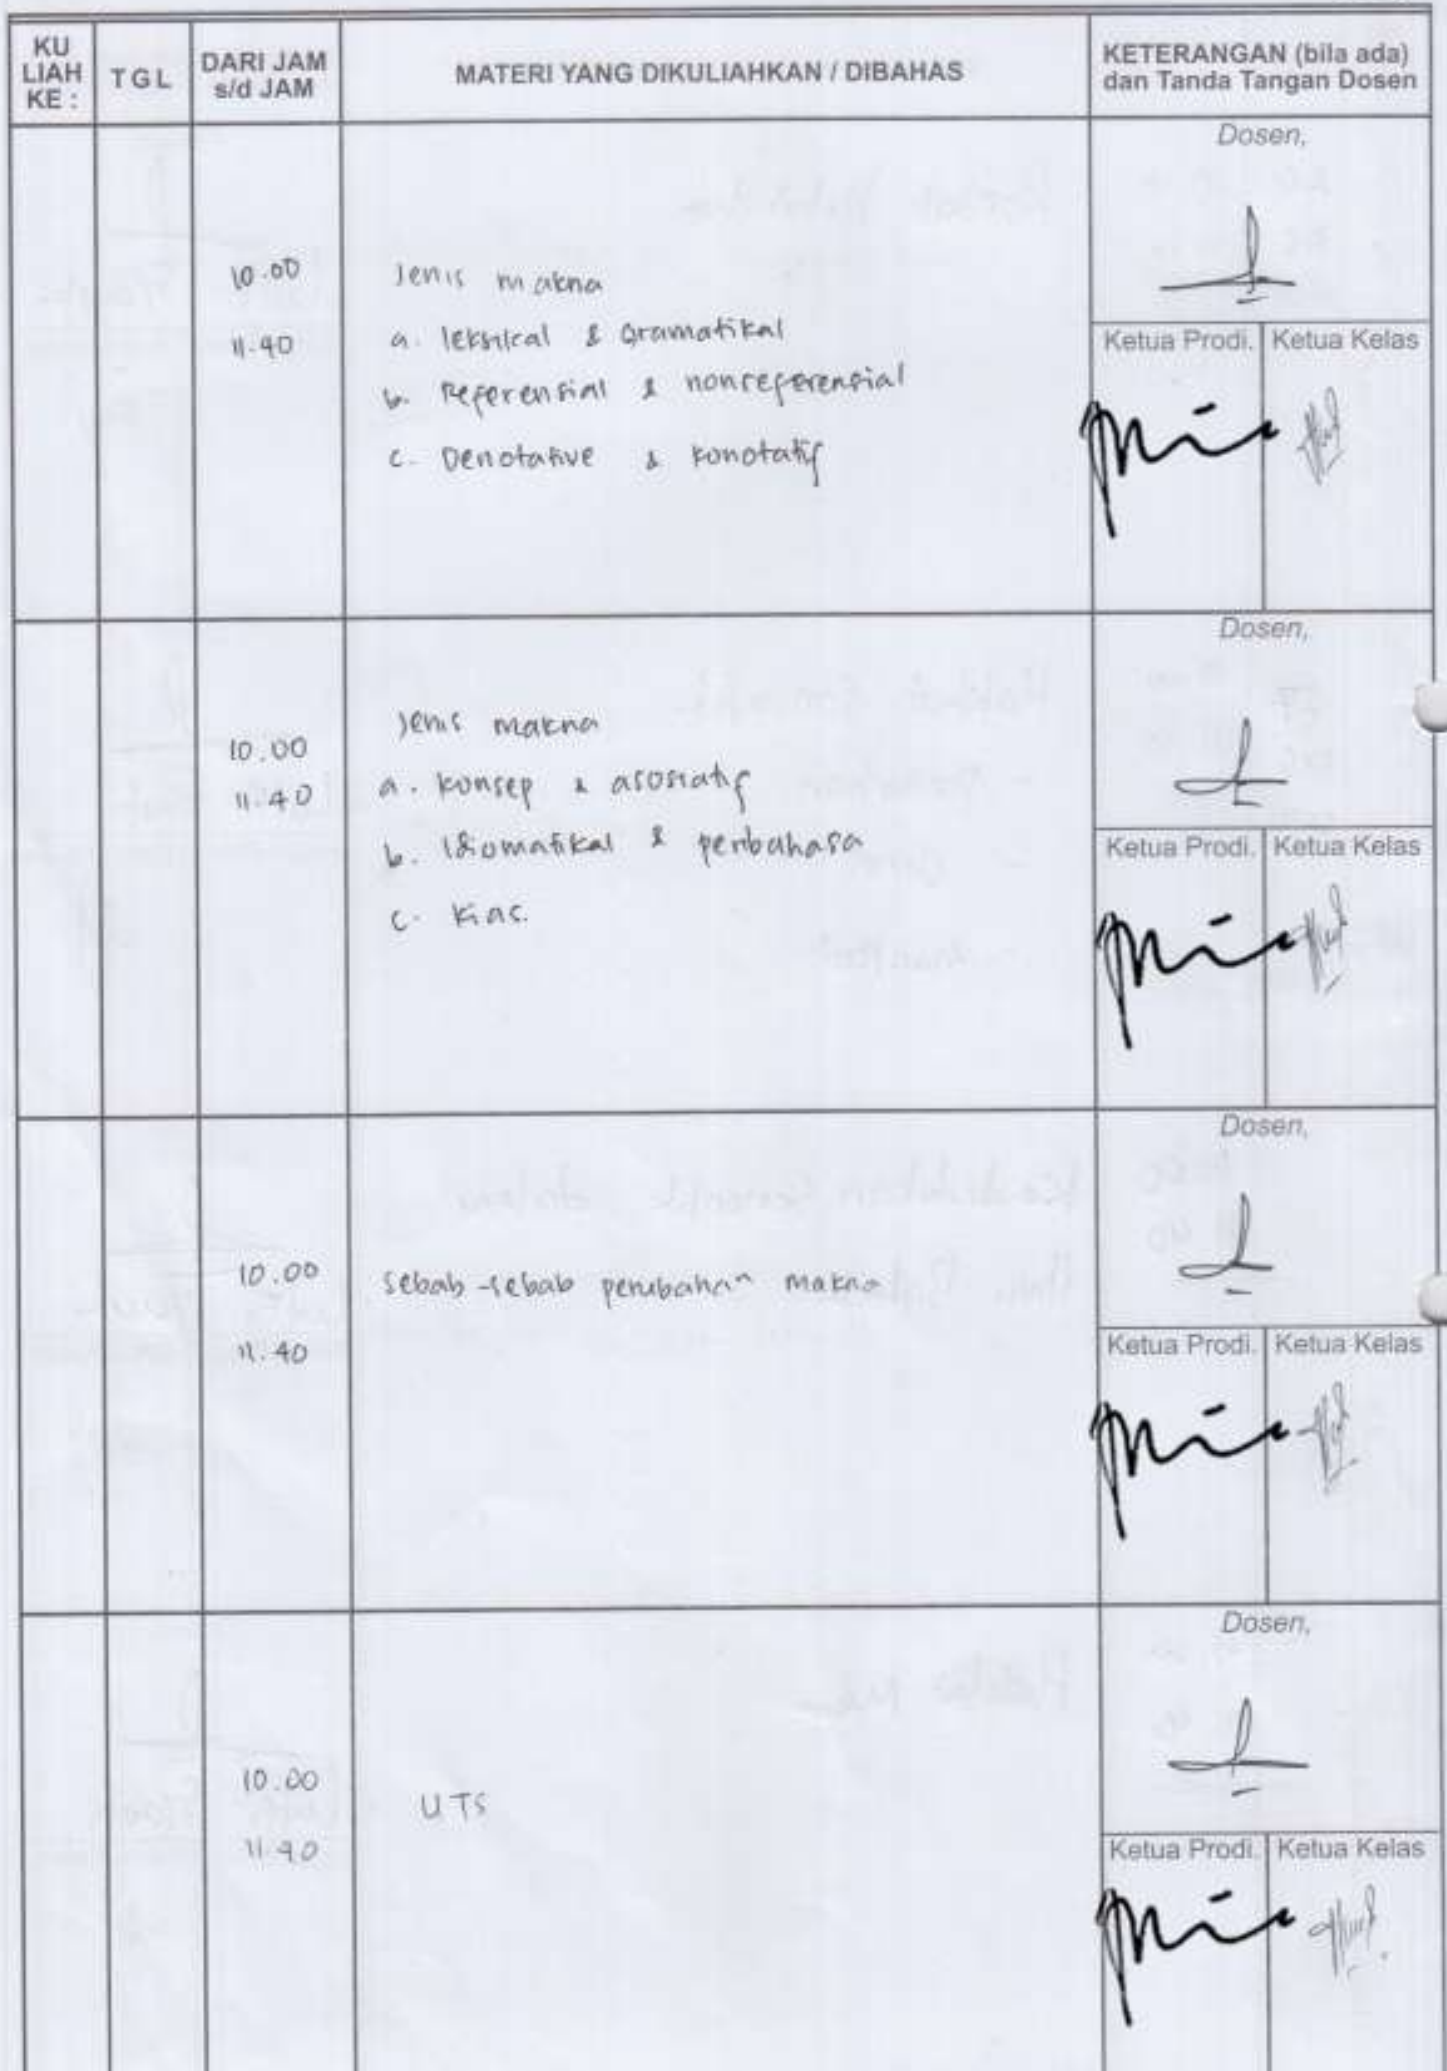 KU LIAH KE :
TGL
DARI JAM s/d JAM
MATERI YANG DIKULIAHKAN / DIBAHAS
KETERANGAN (bila ada) dan Tanda Tangan Dosen
Dosen,
10.00
11.40
Jenis makna
a. leksikal & Gramatikal
b. Referensial & nonreferensial
c. Denotative & konotatif
Ketua Prodi.
Ketua Kelas
Dosen,
10.00
11.40
Jenis makna
a. konsep & asosiatif
b. Idiomatikal & peribahasa
c. kias.
Ketua Prodi.
Ketua Kelas
Dosen,
10.00
11.40
sebab-sebab perubahan makna
Ketua Prodi.
Ketua Kelas
Dosen,
10.00
11.40
UTS
Ketua Prodi.
Ketua Kelas